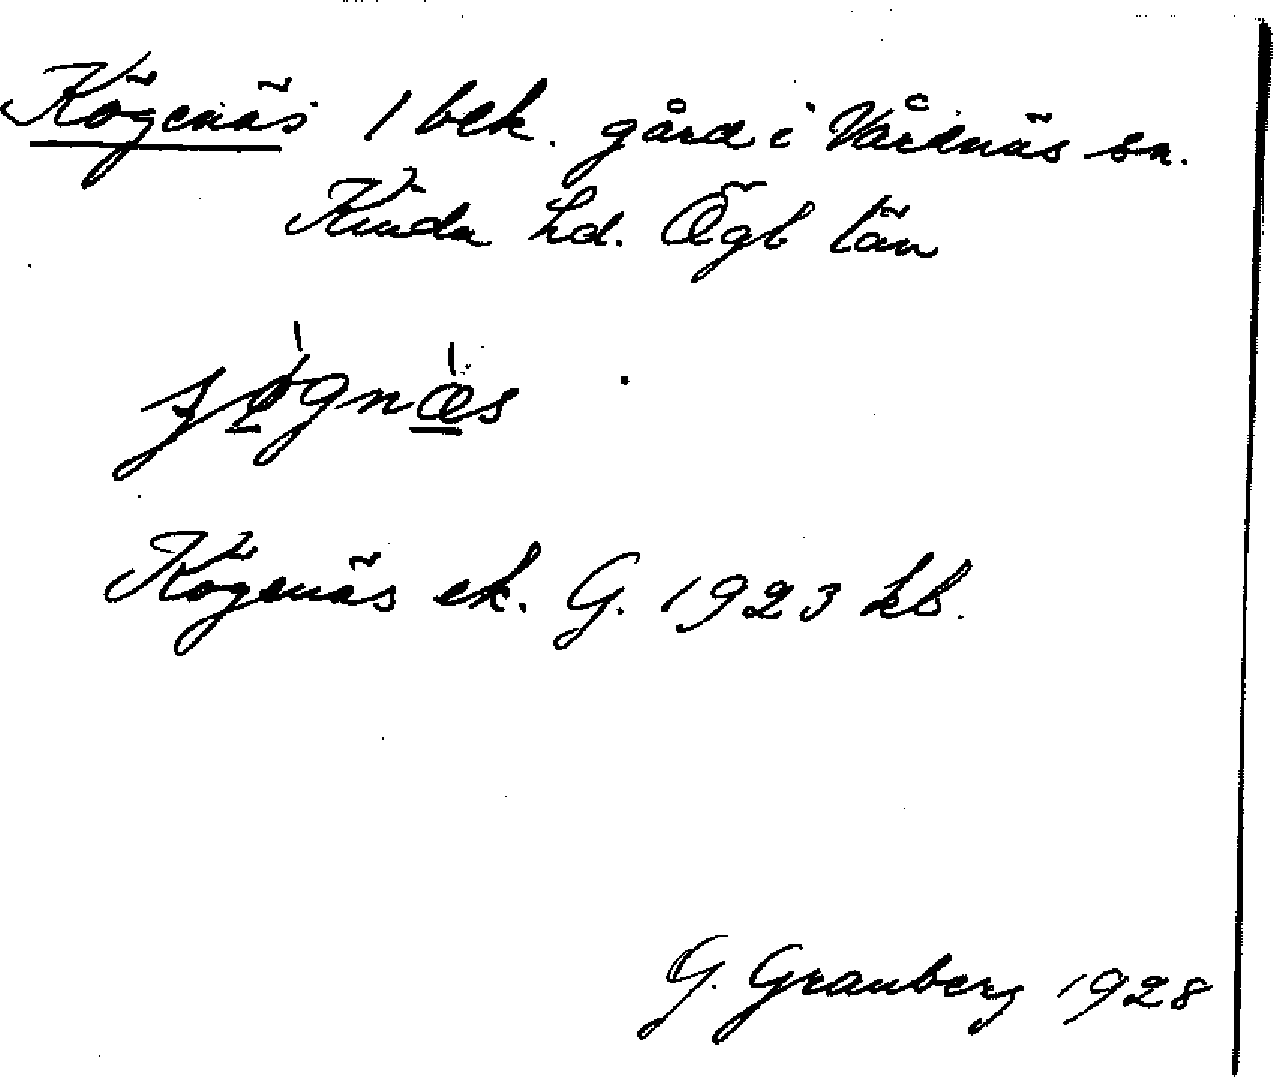 Kögenäs 1 bek. gård i Vårdnäs sn.
Kinda hd. Ögl län
Kögenäs ek. G. 1923 kb.
G. Granberg 1928